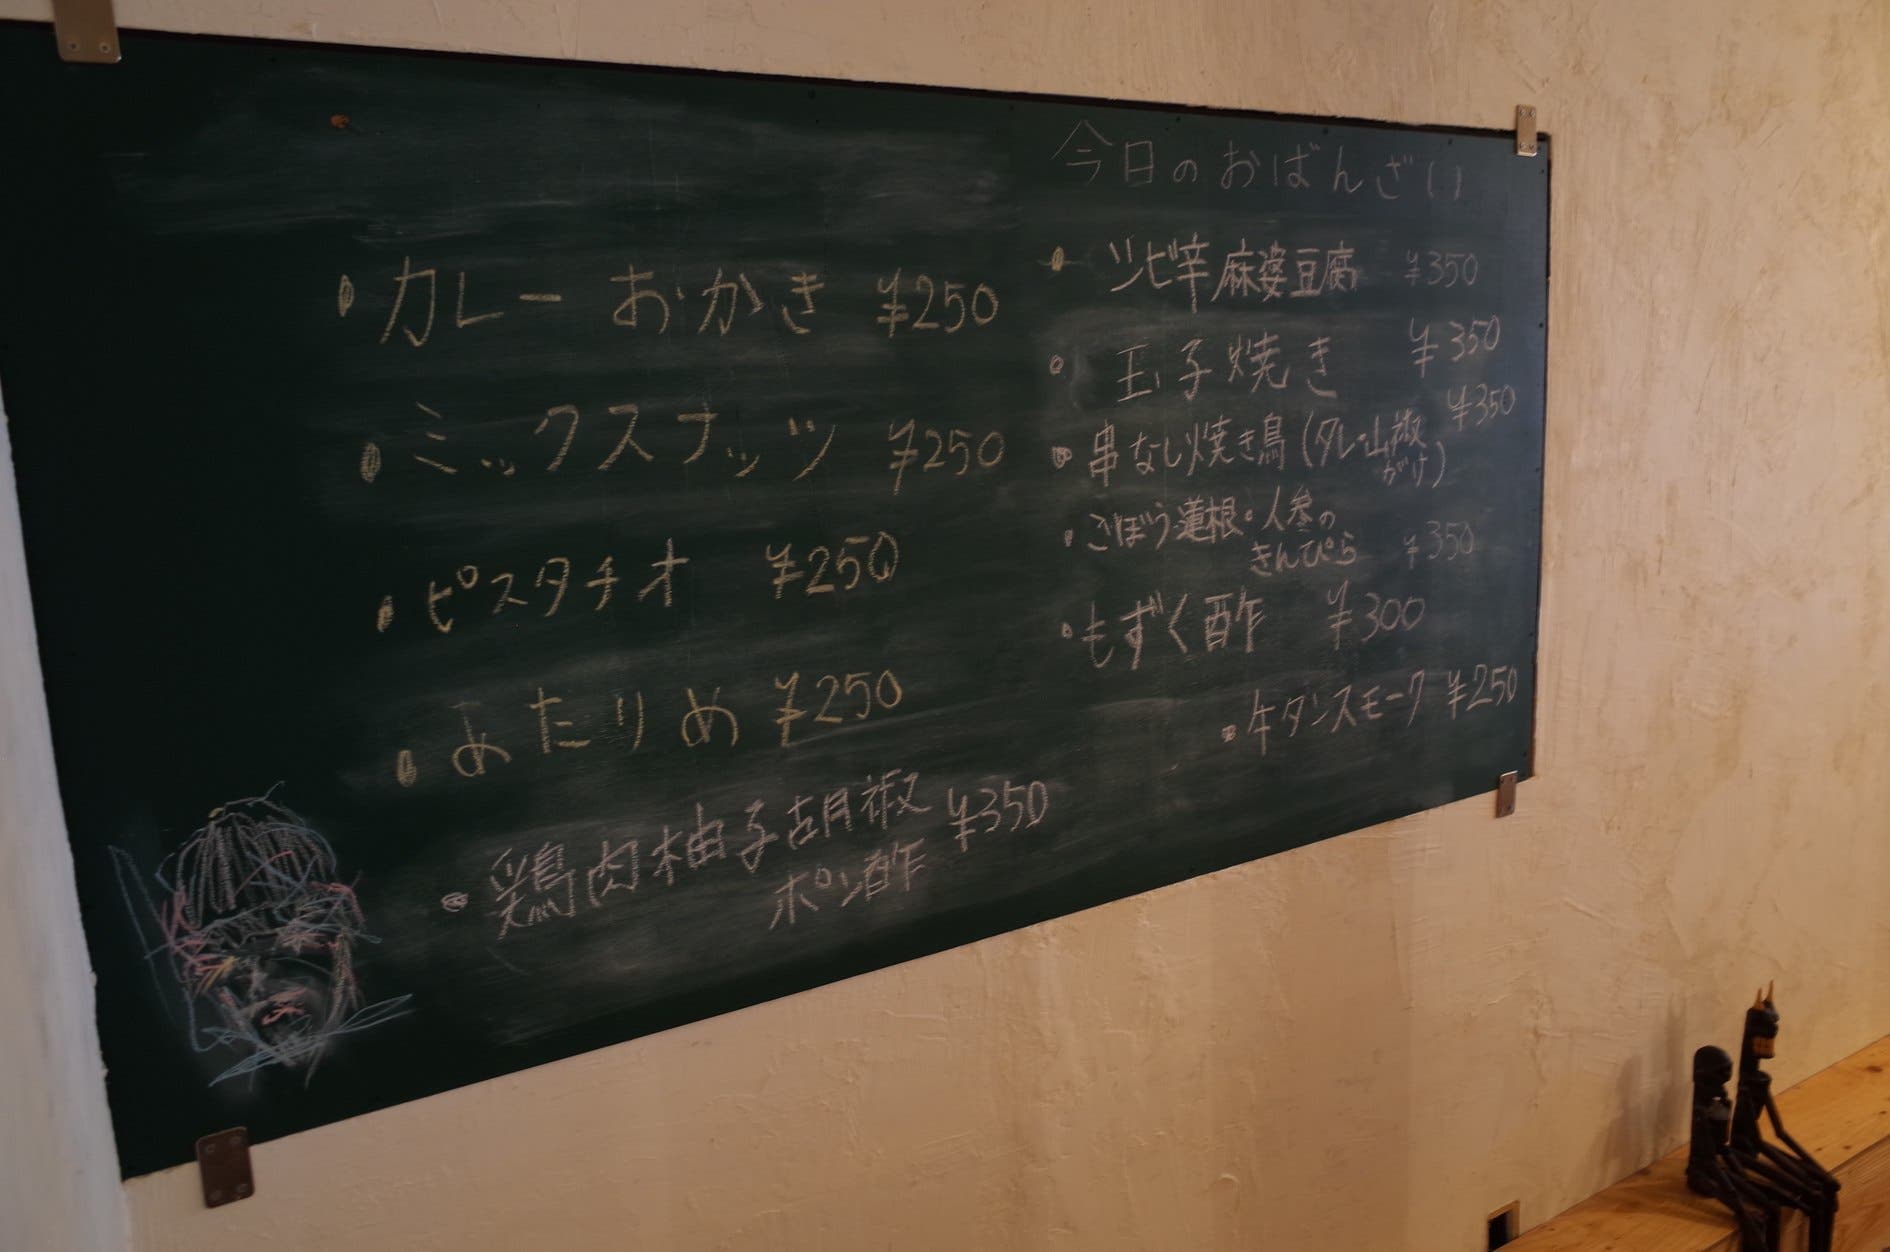 ・カレーおかき ¥250
・ミックスナッツ ¥250
・ピスタチオ ¥250
・あたりめ ¥250
・鶏肉柚子胡椒 ¥350
ポン酢
今日のおばんざい
・シビ辛麻婆豆腐 ¥350
・玉子焼き ¥350
・串なし焼き鳥(タレ・山椒 ¥350
がけ)
・ごぼう蓮根・人参の
きんぴら ¥350
・もずく酢 ¥300
・牛タンスモーク ¥250